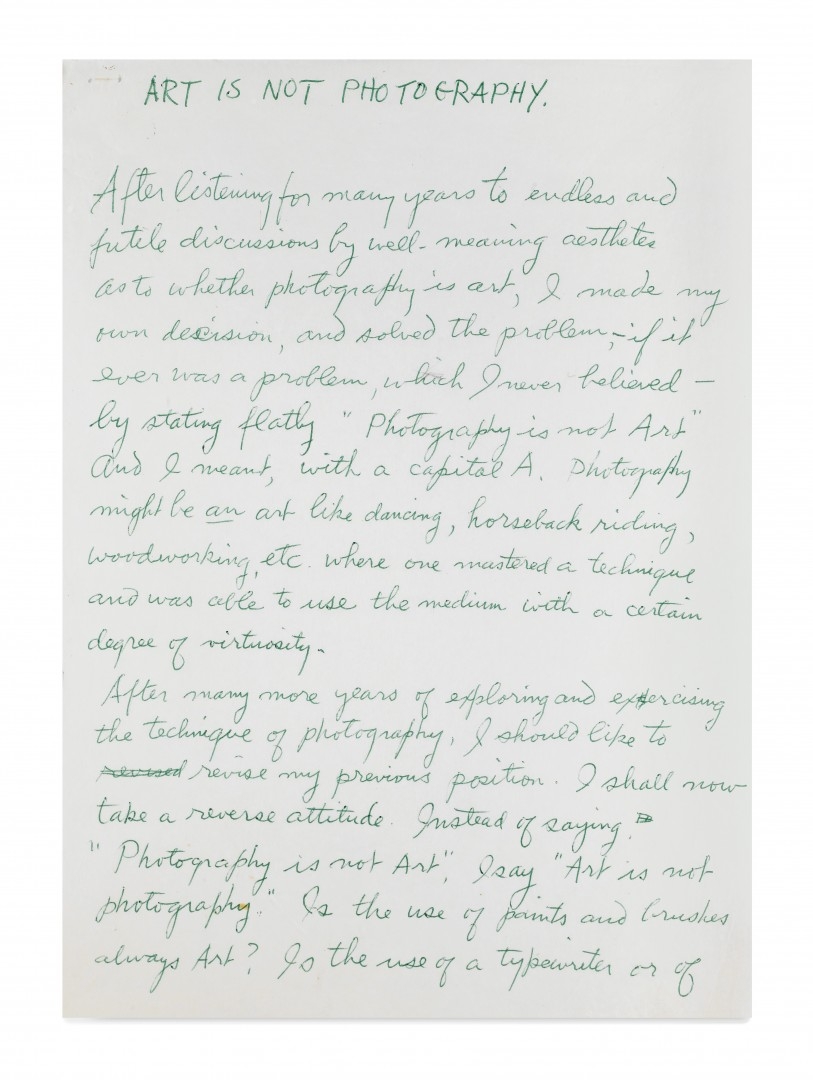 ART IS NOT PHOTOGRAPHY.
After listening for many years to endless and
futile discussions by well-meaning aesthetes
as to whether photography is art, I made my
own decision, and solved the problem, – if it
ever was a problem, which I never believed –
by stating flatly "Photography is not Art"
and I meant, with a capital A. Photography
might be an art like dancing, horseback riding,
woodworking, etc. where one mastered a technique
and was able to use the medium with a certain
degree of virtuosity.
After many more years of exploring and exercising
the technique of photography, I should like to
revised revise my previous position. I shall now
take a reverse attitude. Instead of saying
"Photography is not Art", I say "Art is not
photography." Is the use of paints and brushes
always Art? Is the use of a typewriter or of